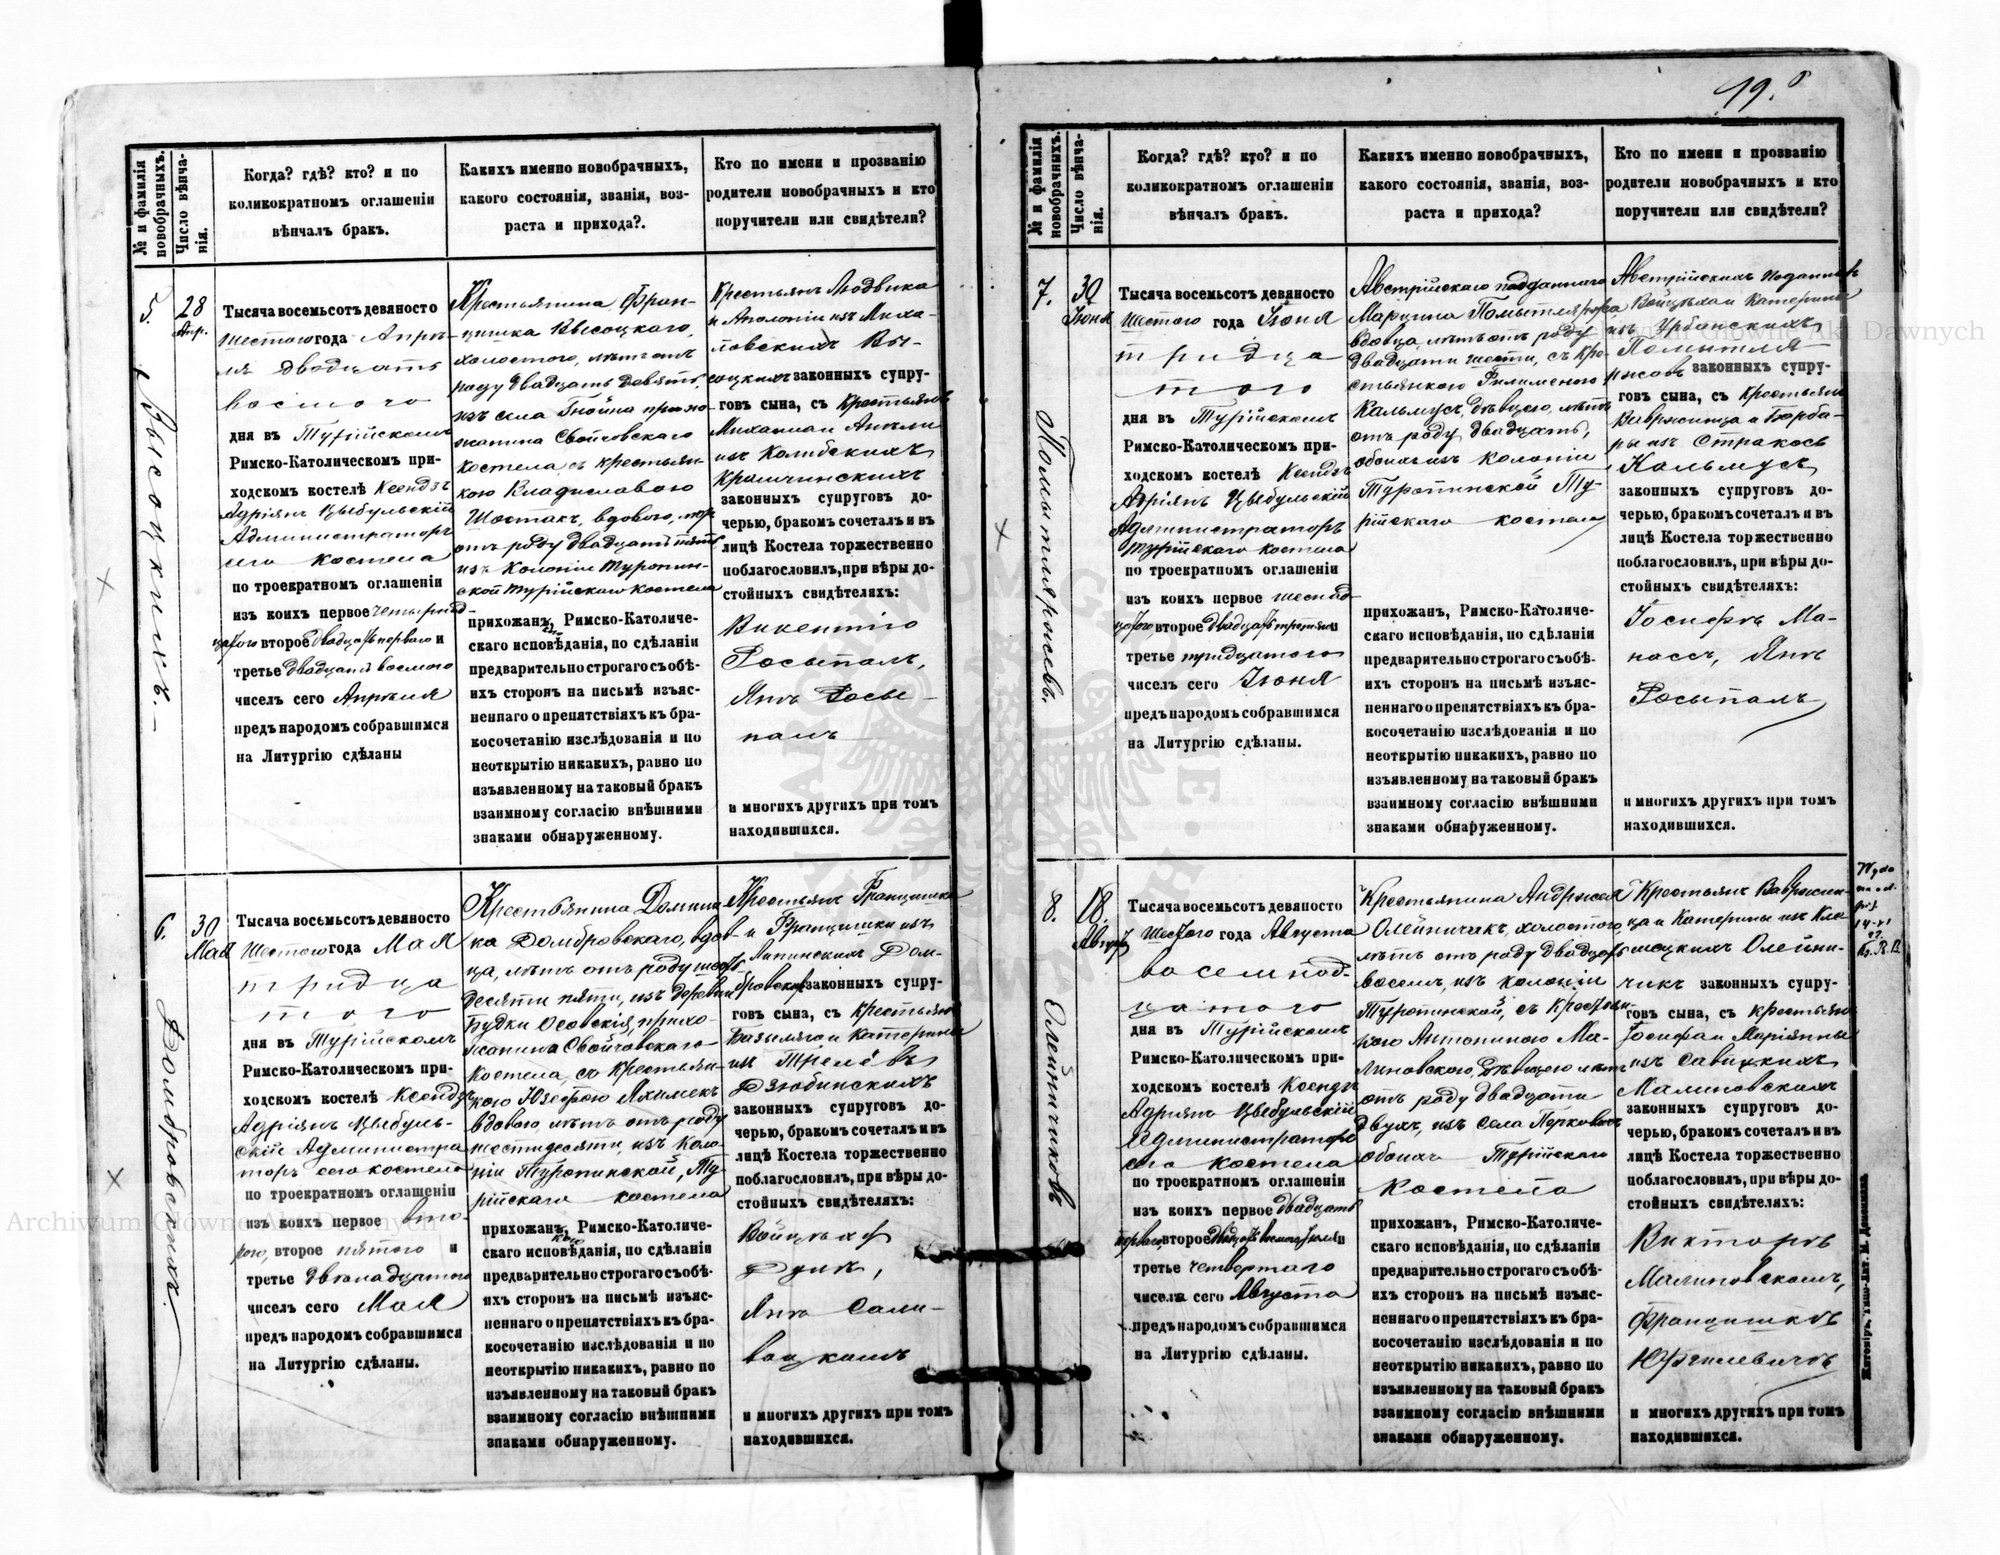 19.
№ и фамилія новобрачныхъ.
Число вѣнчанія.
Когда? гдѣ? кто? и по
коликократномъ оглашеніи
вѣнчалъ бракъ.
Какихъ именно новобрачныхъ,
какого состоянія, званія, воз-
раста и прихода?.
Кто по имени и прозванію
родители новобрачныхъ и кто
поручители или свидѣтели?
5.
Высоцкихъ.
28
Апр.
Тысяча восемьсотъ девяносто
шестого года Апрѣ-
ля двадцать
восмого
дня въ Турійскомъ
Римско-Католическомъ при-
ходскомъ костелѣ Ксендзъ
Адріянъ Цыбульскій
Администраторъ
сего костела
по троекратномъ оглашеніи
изъ коихъ первое четырнад-
цатого второе двадцать перваго и
третье двадцать восмого
чиселъ сего Апрѣля
предъ народомъ собравшимся
на Литургію сдѣланы
Крестьянина Фран-
цишка Высоцкаго,
холостого, лѣтъ отъ
роду двадцать девять,
изъ села Гнойна прихо-
жанина Свойчовскаго
костела, съ крестьян-
кою Владиславою
Шостакъ, вдовою, лѣтъ
отъ роду двадцать пять
изъ Колоніи Туропин-
ской Турійскаго Костела
прихожанъ, Римско-Католиче-
скаго исповѣданія, по сдѣланіи
предварительно строгаго съ обѣ-
ихъ сторонъ на письмѣ изъяс-
неннаго о препятствіяхъ къ бра-
косочетанію изслѣдованія и по
неоткрытію никакихъ, равно по
изъявленному на таковый бракъ
взаимному согласію внѣшними
знаками обнаруженному.
Крестьянъ Людвика
и Аполоніи изъ Миха-
ловскихъ Вы-
соцкихъ законныхъ супру-
говъ сына, съ Крестьянъ
Михаила и Анели
изъ Колибскихъ
Крамчинскихъ
законныхъ супруговъ до-
черью, бракомъ сочеталъ и въ
лицѣ Костела торжественно
поблагословилъ, при вѣры до-
стойныхъ свидѣтеляхъ:
Викентію
Росыпалъ,
Янъ Росы-
палъ
и многихъ другихъ при томъ
находившихся.
6.
Домбровскихъ.
30
Мая
Тысяча восемьсотъ девяносто
Шестого года Мая
тридца
того
дня въ Турійскомъ
Римско-Католическомъ при-
ходскомъ костелѣ Ксендзъ
Адріянъ Цыбуль-
скій Администра
торъ сего костела
по троекратномъ оглашеніи
изъ коихъ первое вто-
рого, второе пятого и
третье двенадцатого
чиселъ сего Мая
предъ народомъ собравшимся
на Литургію сдѣланы.
Крестьянина Домини
ка Домбровскаго, вдов-
ца, лѣтъ отъ роду шесть
десяти пяти, изъ деревни
Будки Осовскія, прихо-
жанина Свойчовскаго
Костела, съ Крестьян-
кою Юзефою Яхимекъ
вдовою, лѣтъ отъ роду
шестидесяти, изъ Коло-
ніи Туропинской, Ту-
рійскаго костела
прихожанъ, Римско-Католиче-
скаго исповѣданія, по сдѣланіи
предварительно строгаго съ обѣ-
ихъ сторонъ на письмѣ изъяс-
неннаго о препятствіяхъ къ бра-
косочетанію изслѣдованія и по
неоткрытію никакихъ, равно по
изъявленному на таковый бракъ
взаимному согласію внѣшними
знаками обнаруженному.
Крестьянъ Францишка
и Францишки изъ
Липинскихъ Дом-
бровскихъ законныхъ супру-
говъ сына, съ Крестьянъ
и Катерины
Дзюбинскихъ
законныхъ супруговъ до-
черью, бракомъ сочеталъ и въ
лицѣ Костела торжественно
поблагословилъ, при вѣры до-
стойныхъ свидѣтеляхъ:
Войцѣхъ
Дуль,
Янъ Сали-
вацкомъ
и многихъ другихъ при томъ
находившихся.
№ и фамилія новобрачныхъ.
Число вѣнчанія.
Когда? гдѣ? кто? и по
коликократномъ оглашеніи
вѣнчалъ бракъ.
Какихъ именно новобрачныхъ,
какого состоянія, званія, воз-
раста и прихода?
Кто по имени и прозванію
родители новобрачныхъ и кто
поручители или свидѣтели?
7.
Помытляржевъ.
30
Іюня
Тысяча восемьсотъ девяносто
Шестого года Іюня
тридца
того
дня въ Турійскомъ
Римско-Католическомъ при-
ходскомъ костелѣ Ксендзъ
Адріянъ Цыбульскій
Администраторъ
Турійскаго костела
по троекратномъ оглашеніи
изъ коихъ первое шеснад-
цатого второе двадцать третяго и
третье тридцатого
чиселъ сего Іюня
предъ народомъ собравшимся
на Литургію сдѣланы.
Австрійскаго подданного
Марцина Помытляржа
вдовца, лѣтъ отъ роду
двадцати шести, съ кре-
стьянкою Филименою
Кальмусъ, дѣвцею, лѣтъ
отъ роду двадцать,
обоихъ изъ колоніи
Туропинской Ту-
рійскаго костела
прихожанъ, Римско-Католиче-
скаго исповѣданія, по сдѣланіи
предварительно строгаго съ обѣ-
ихъ сторонъ на письмѣ изъяс-
неннаго о препятствіяхъ къ бра-
косочетанію изслѣдованія и по
неоткрытію никакихъ, равно по
изъявленному на таковый бракъ
взаимному согласію внѣшними
знаками обнаруженному.
Австрійскихъ поданныхъ
Войцѣха и Катерины
изъ Урбанскихъ
Помытля
ржовъ законныхъ супру-
говъ сына, съ Крестьянъ
Вавржинца и Барба-
ры изъ Стракосъ
Кальмусъ
законныхъ супруговъ до-
черью, бракомъ сочеталъ и въ
лицѣ Костела торжественно
поблагословилъ, при вѣры до-
стойныхъ свидѣтеляхъ:
Іосифъ Ма-
нассъ, Янъ
Росыпалъ
и многихъ другихъ при томъ
находившихся.
8.
Олейничиковъ
18.
Августа
Тысяча восемьсотъ девяносто
Шестого года Августа
восемнад-
цатого
дня въ Турійскомъ
Римско-Католическомъ при-
ходскомъ костелѣ Ксендзъ
Адріянъ Цыбульскій
Администраторъ
сего костела
по троекратномъ оглашеніи
изъ коихъ первое двадцать
перваго, второе двадцать восмого Іюля и
третье четвертаго
чиселъ сего Августа
предъ народомъ собравшимся
на Литургію сдѣланы.
Крестьянина Андржея
Олейничикъ, холостого,
лѣтъ отъ роду двадцать
восемъ, изъ колоніи
Туропинской, съ Крестьян
кою Антониною Ма-
линовскою, дѣвицею лѣтъ
отъ роду двадцати
двухъ, изъ села Перковичъ
обоихъ Турійскаго
Костела
прихожанъ, Римско-Католиче-
скаго исповѣданія, по сдѣланіи
предварительно строгаго съ обѣ-
ихъ сторонъ на письмѣ изъяс-
неннаго о препятствіяхъ къ бра-
косочетанію изслѣдованія и по
неоткрытію никакихъ, равно по
изъявленному на таковый бракъ
взаимному согласію внѣшними
знаками обнаруженному.
Крестьянъ Вавржин-
ца и Катерины изъ Кло-
моцкихъ Олейни-
чикъ законныхъ супру-
говъ сына, съ Крестьянъ
Іосифа и Маріянны
изъ Савицкихъ
Малиновскихъ
законныхъ супруговъ до-
черью, бракомъ сочеталъ и въ
лицѣ Костела торжественно
поблагословилъ, при вѣры до-
стойныхъ свидѣтеляхъ:
Викторъ
Малиновскомъ,
Францишкъ
и многихъ другихъ при томъ
находившихся.
Житоміръ, Типо-Лит. М. Дененмана.
Archiwum Główne Akt Dawnych
Archiwum Główne Akt Dawnych